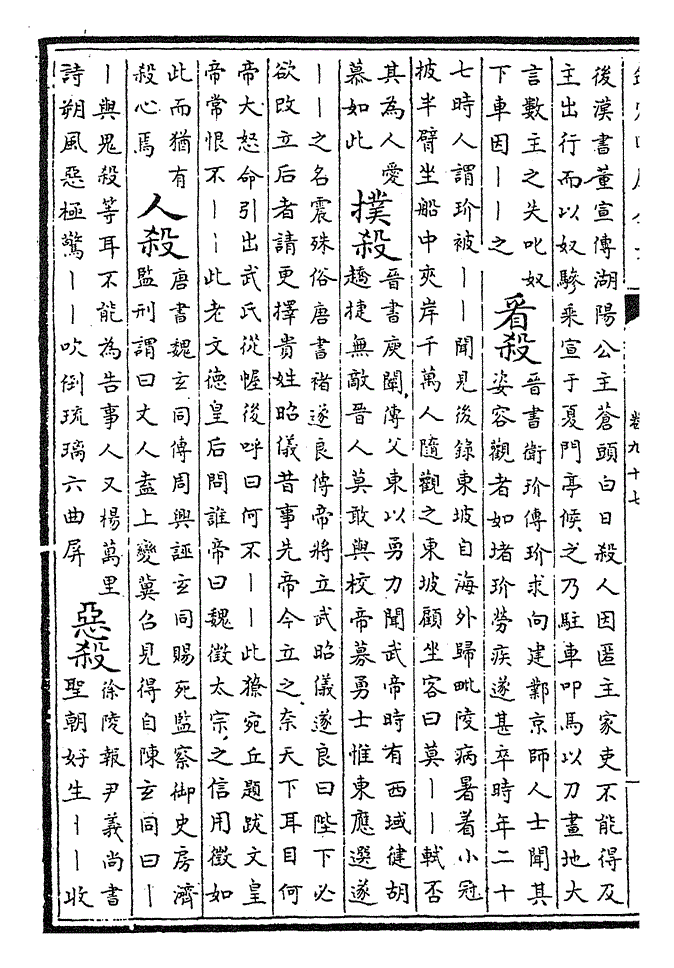 卷九十七
後漢書董宣傳湖陽公主蒼頭白日殺人因匿主家吏不能得及
主出行而以奴驂乘宣于夏門亭候之乃駐車叩馬以刀畫地大
言數主之失叱奴
下車因丨丨之
看殺
晉書衛玠傳玠求向建鄴京師人士聞其
姿容觀者如堵玠勞疾遂甚卒時年二十
七時人謂玠被丨丨聞見後錄東坡自海外歸毗陵病暑着小冠
披半臂坐船中夾岸千萬人隨觀之東坡顧坐客曰莫丨丨軾否
其為人愛
慕如此
撲殺
晉書庾闡傳父東以勇力聞武帝時有西域健胡
趫捷無敵晉人莫敢與校帝募勇士惟東應選遂
丨丨之名震殊俗唐書褚遂良傳帝將立武昭儀遂良曰陛下必
欲改立后者請更擇貴姓昭儀昔事先帝今立之奈天下耳目何
帝大怒命引出武氏從幄後呼曰何不丨丨此獠宛丘題跋文皇
帝常恨不丨丨此老文德皇后問誰帝曰魏徵太宗之信用徵如
此而猶有
殺心焉
人殺
唐書魏玄同傳周興誣玄同賜死監察御史房濟
監刑謂曰丈人盍上變冀召見得自陳玄同曰丨
丨與鬼殺等耳不能為告事人又楊萬里
詩朔風惡極驚丨丨吹倒琉璃六曲屏
惡殺
徐陵報尹義尚書
聖朝好生丨丨收